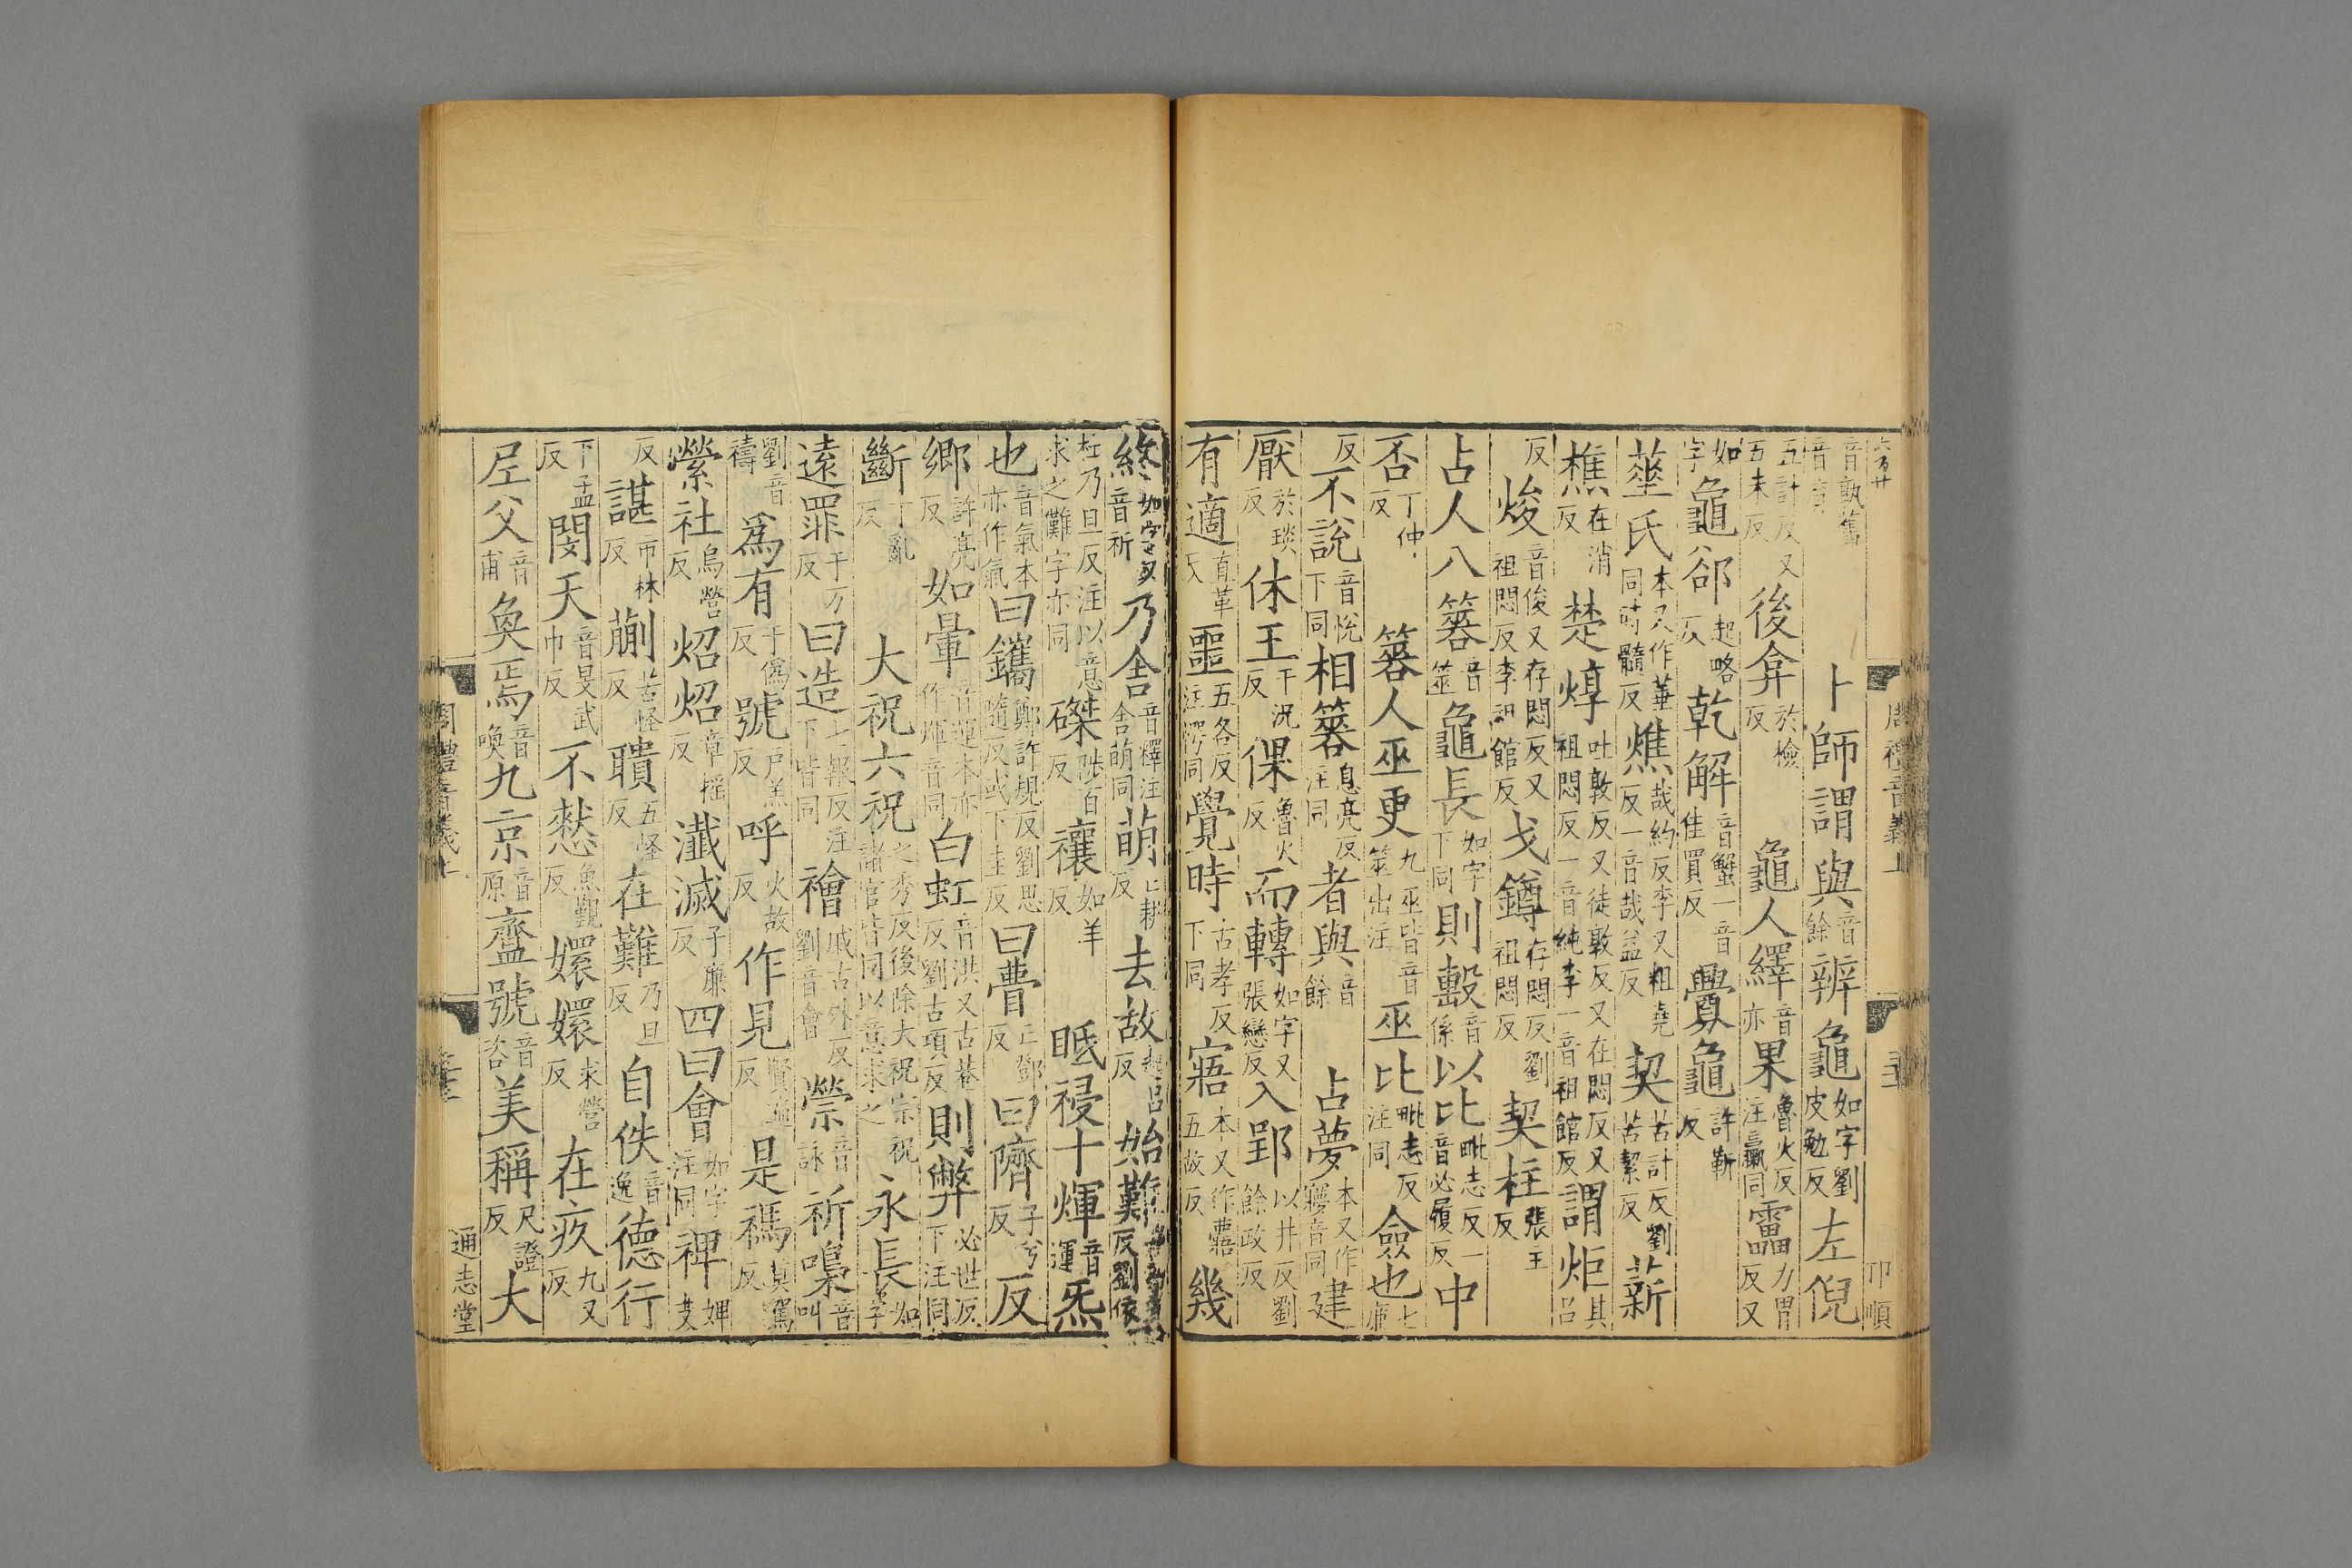 六百廿
周禮音義上
三十三
卬順
音動舊音童 卜師謂與音餘辨龜如字劉皮勉反左倪
五計反又五未反後弇於檢反 龜人繹音亦果魯火反注蠃同靁力胃反又
如字龜郤起略反乾解音蟹一音佳買反釁龜許靳反
菙氏本又作華同時髓反燋哉約反李又粗堯反一音哉益反契苦計反劉苦絜反薪
樵在消反楚焞吐敦反又徒敦反又在悶反又祖悶反一音純李一音祖館反謂炬其呂
反焌音俊又存悶反又祖悶反李祖館反戈鐏存悶反劉祖悶反契柱張主反
占人八簭音筮龜長如字下同則毄音係以比毗志反一音必履反中
否丁仲反 簭人巫更九巫皆音筮出注巫比毗志反注同僉也七廉
反不說音悅下同相簭息亮反注同者與音餘 占夢本又作㝱音同建
厭於琰反休王于況反倮魯火反而轉如字又張戀反入郢以井反劉餘政反
有適直革反噩五各反注愕同覺時古孝反下同寤本又作㝱五故反幾
終如字又音祈乃舍音釋注舍萌同萌亡耕反去故起呂反始難
杜乃旦反注以意求之難字亦同磔陟百反禳如羊反 眡祲十煇音運炁
也音氣本亦作氣曰鑴鄭許規反劉思隨反或下圭反曰瞢亡鄧反曰隮子兮反反
鄉許亮反如暈音運本亦作煇音同白虹音洪又古巷反劉古項反則弊必世反下注同
斷丁亂反 大祝六祝之秀反後除大祝宗祝諸官皆同以意求之永長如字
遠罪于万反曰造七報反注下皆同禬戚古外反劉音會禜音詠祈嘄音叫
劉音禱爲有于僞反號戶羔反呼火故反作見賢遍反是禡莫駕反
禜社烏營反炤炤章摇反瀸滅子廉反四曰會如字注同禆婢支
反諶市林反蒯苦怪反聵五怪反在難乃旦反自佚音逸德行
下孟反閔天音旻武巾反不憖魚覲反嬛嬛求營反在疚九又反
尼父音甫奐焉音喚九京音原齍號音咨美稱尺證反大
周禮音義上
通志堂